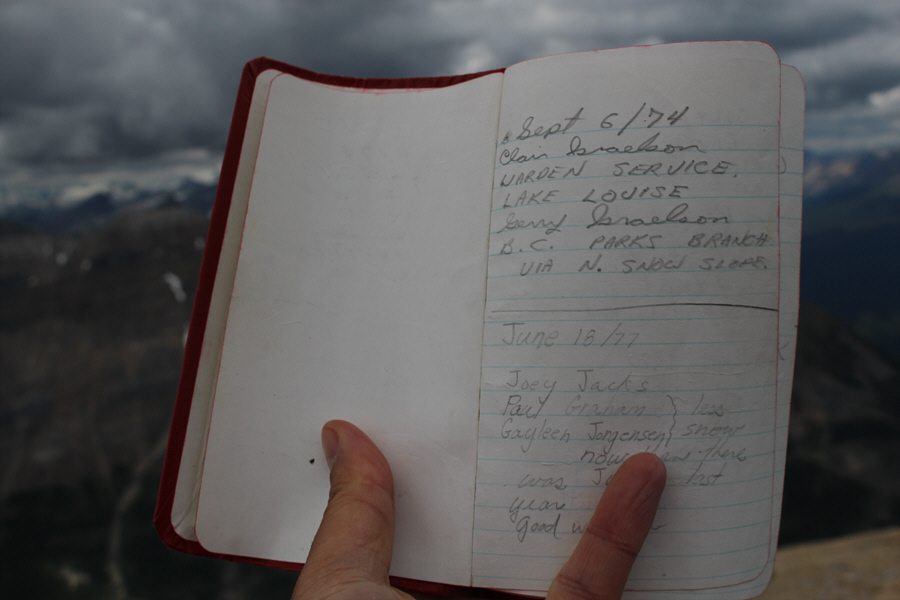 Sept 6/74
Clair Israelson
WARDEN SERVICE.
LAKE LOUISE
Gerry Israelson
B.C. PARKS BRANCH
VIA N. SNOW SLOPE.
June 18/77
Joey Jacks
Paul Graham } less
Gayleen Jorgensen } snow
now than there
was last
year
Good